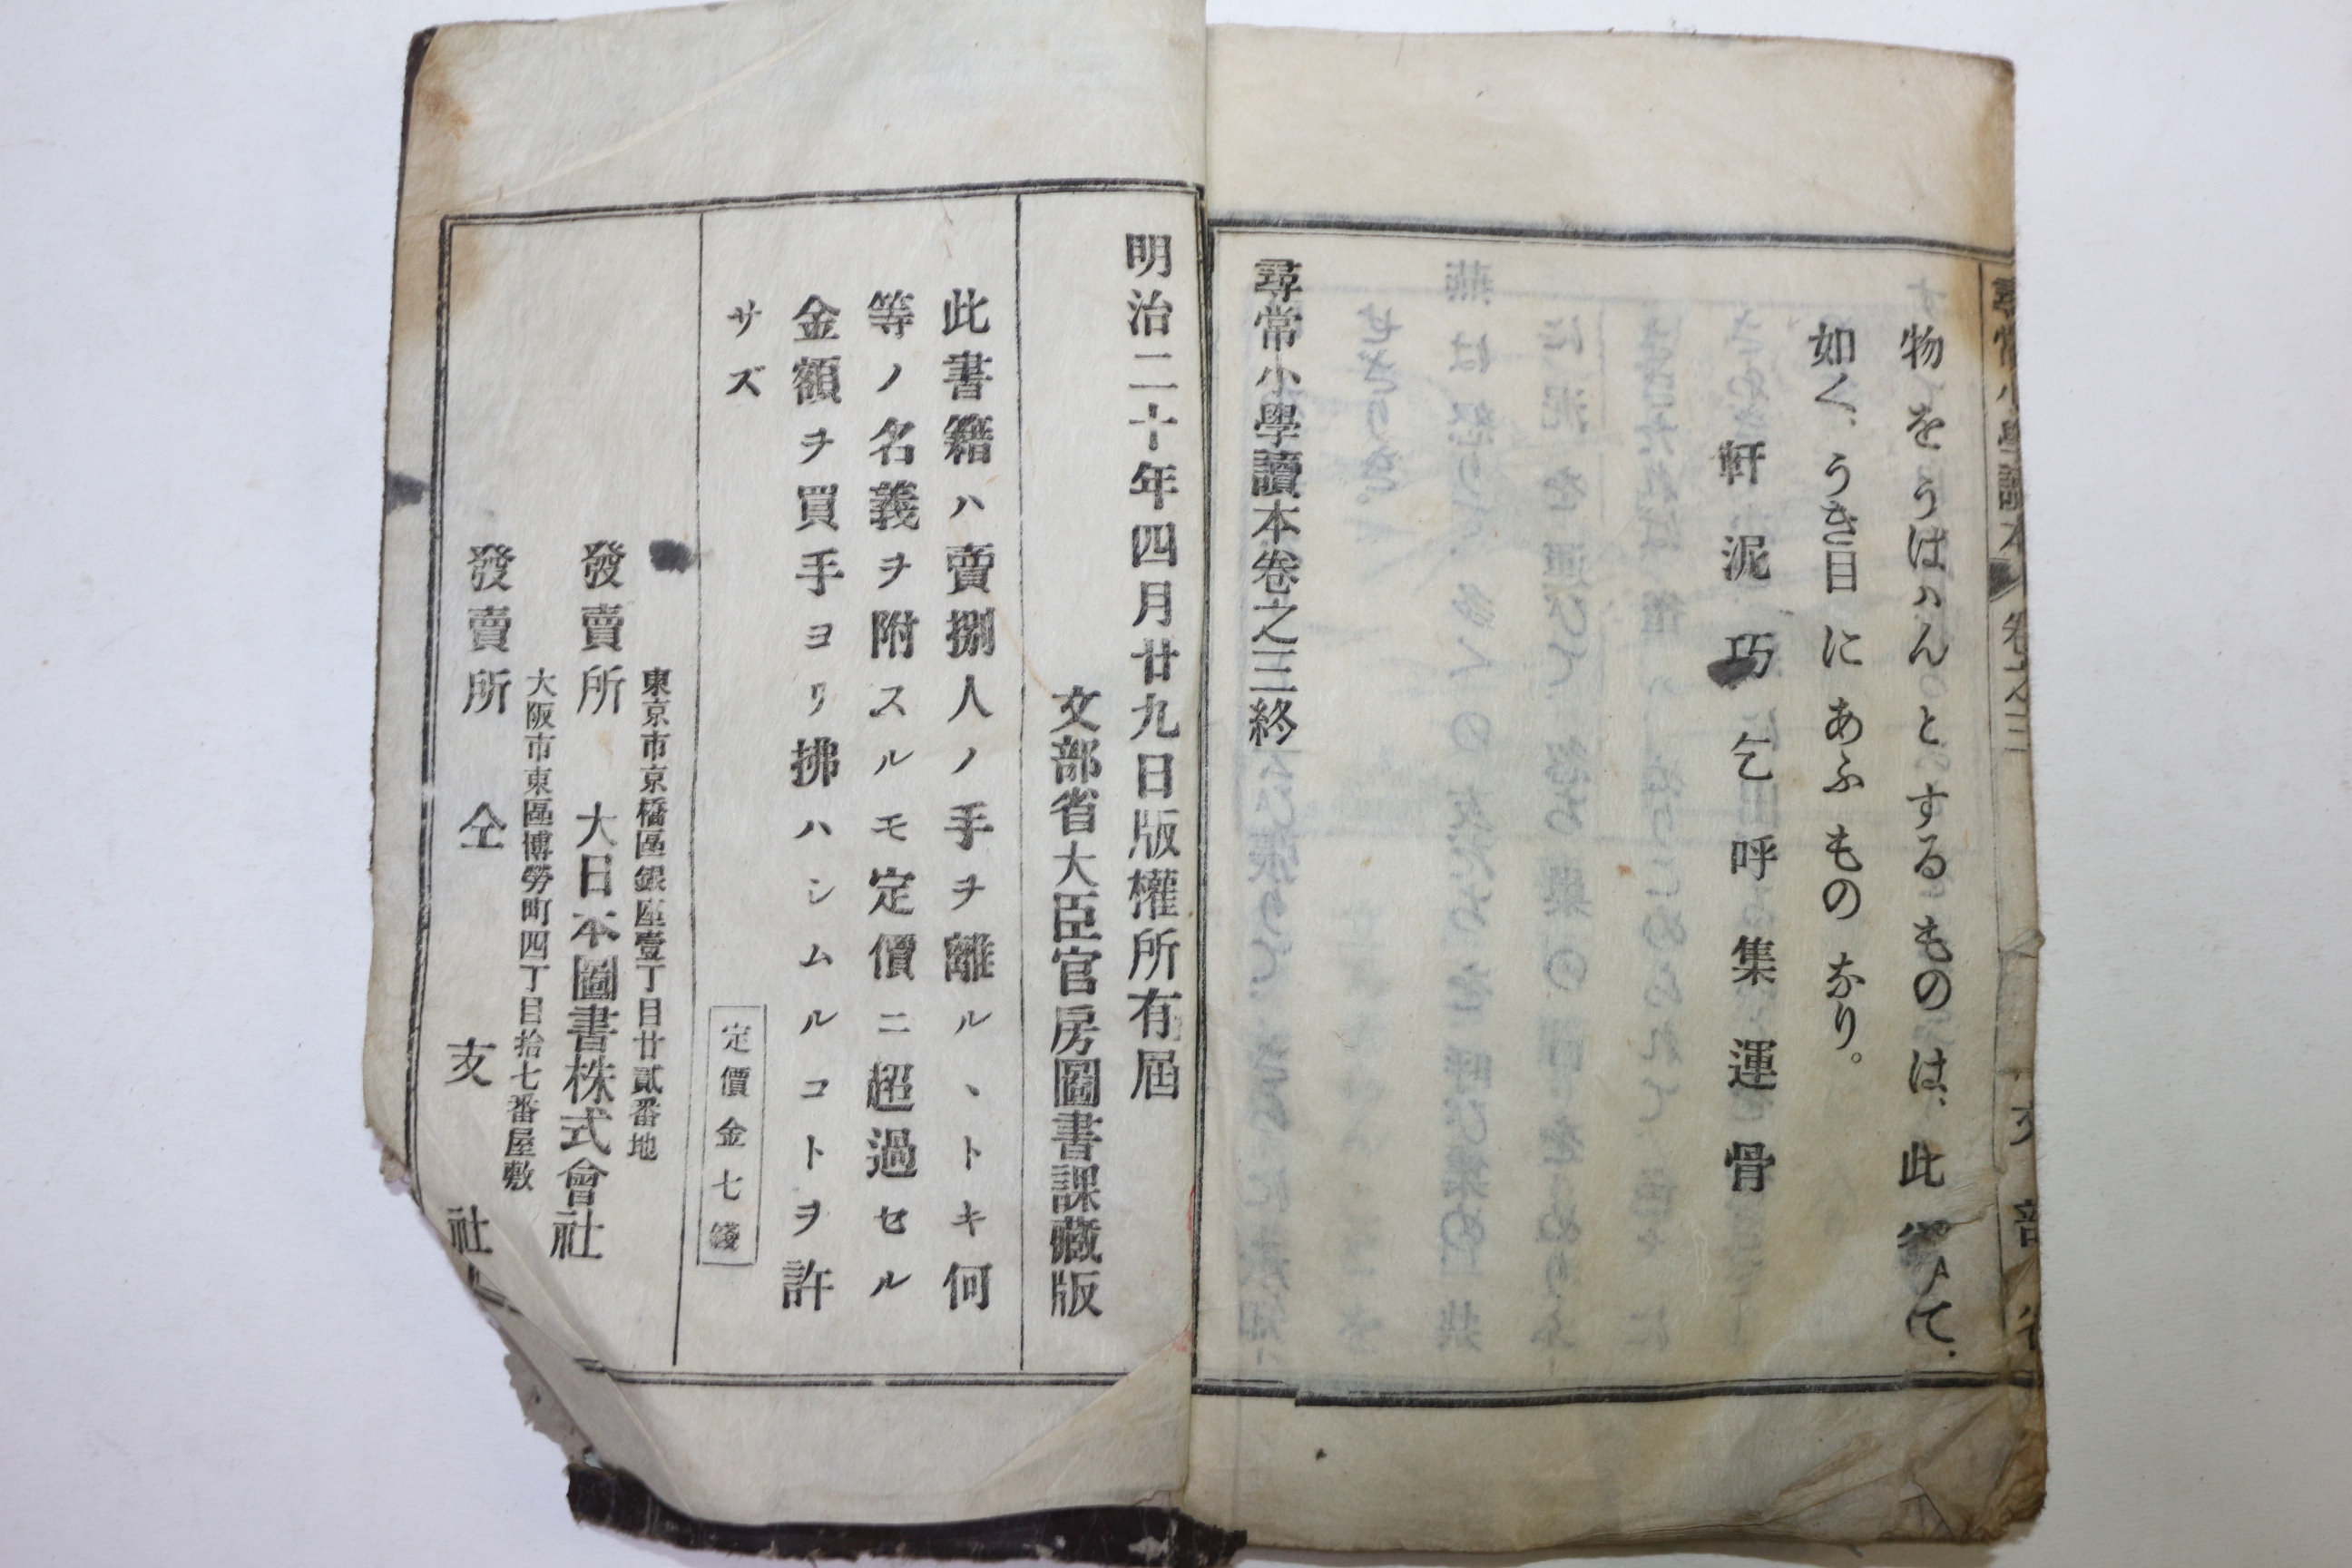 尋常小學讀本卷之三
文部省
物をうばハんとするものは、此雀ノて、
如く、うき目にあふものなり。
軒泥巧乞呼集運骨
尋常小學讀本卷之三終
明治二十年四月廿九日版權所有屆
文部省大臣官房圖書課藏版
此書籍ハ賣捌人ノ手ヲ離ルヽトキ何
等ノ名義ヲ附スルモ定價ニ超過セル
金額ヲ買手ヨリ拂ハシムルコトヲ許
サズ
定價金七錢
東京市京橋區銀座壹丁目廿貳番地
發賣所 大日本圖書株式會社
大阪市東區博勞町四丁目拾七番屋敷
發賣所 仝支社